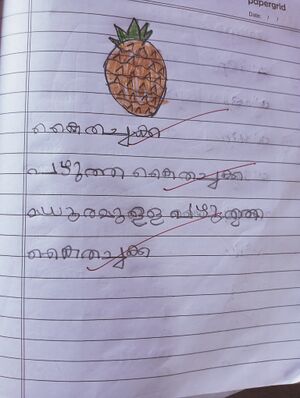 papergrid
Date: / /
കൈതച്ചക്ക
പഴുത്ത കൈതച്ചക്ക
മധുരമുള്ള പഴുത്ത
കൈതച്ചക്ക